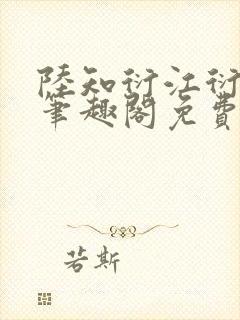 陸知衍江衍
筆趣閣免費
若斯